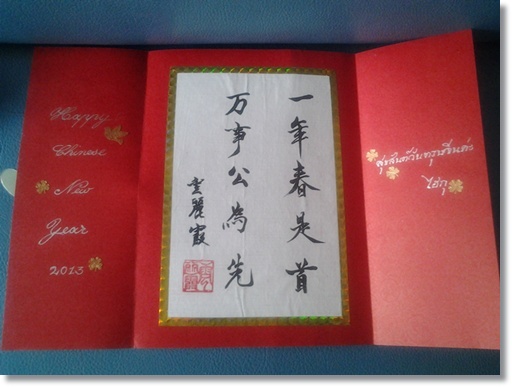 Happy
Chinese
New
Year
2013
一年春是首
万事公為先
麗霞
สุขสันต์วันตรุษจีนค่ะ
ไฮกุ